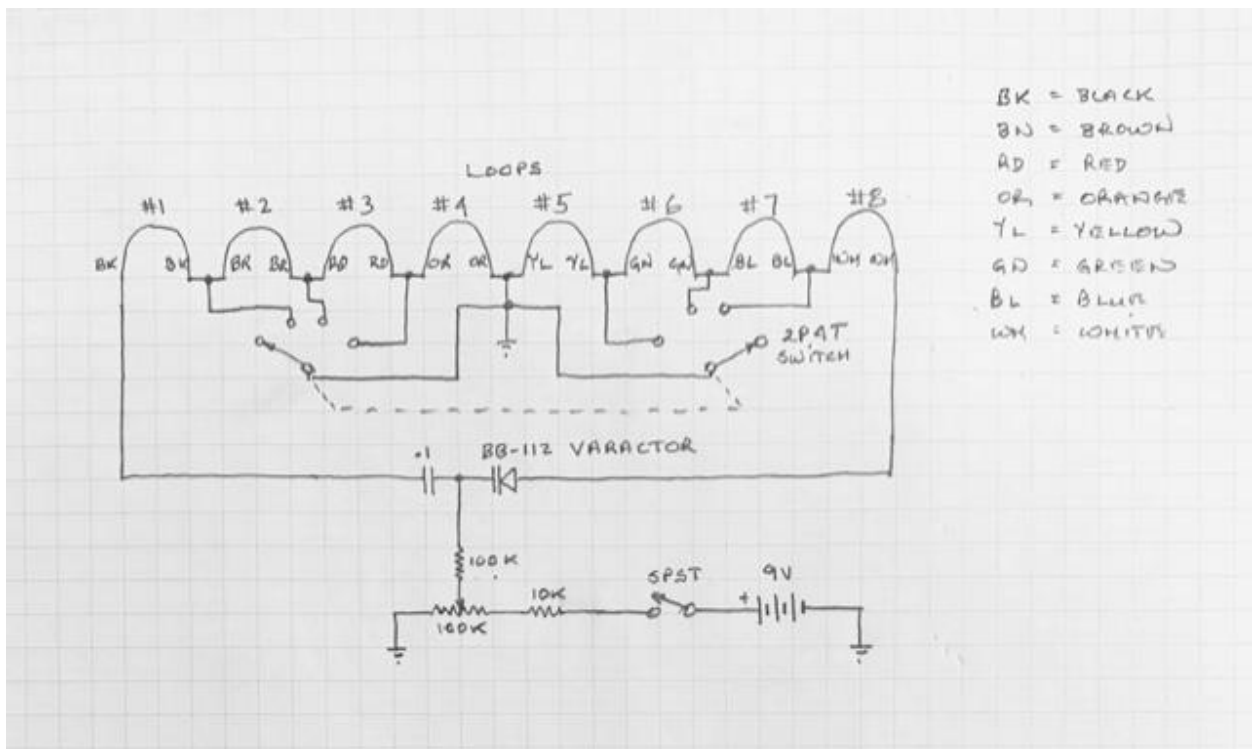 LOOPS
#1 #2 #3 #4 #5 #6 #7 #8
BK BK BR BR RD RD OR OR YL YL GN GN BL BL WH WH
2P4T
SWITCH
.1 BB-112 VARACTOR
100K
SPST 9V
10K
+
100K
BK = BLACK
BN = BROWN
RD = RED
OR = ORANGE
YL = YELLOW
GN = GREEN
BL = BLUE
WH = WHITE